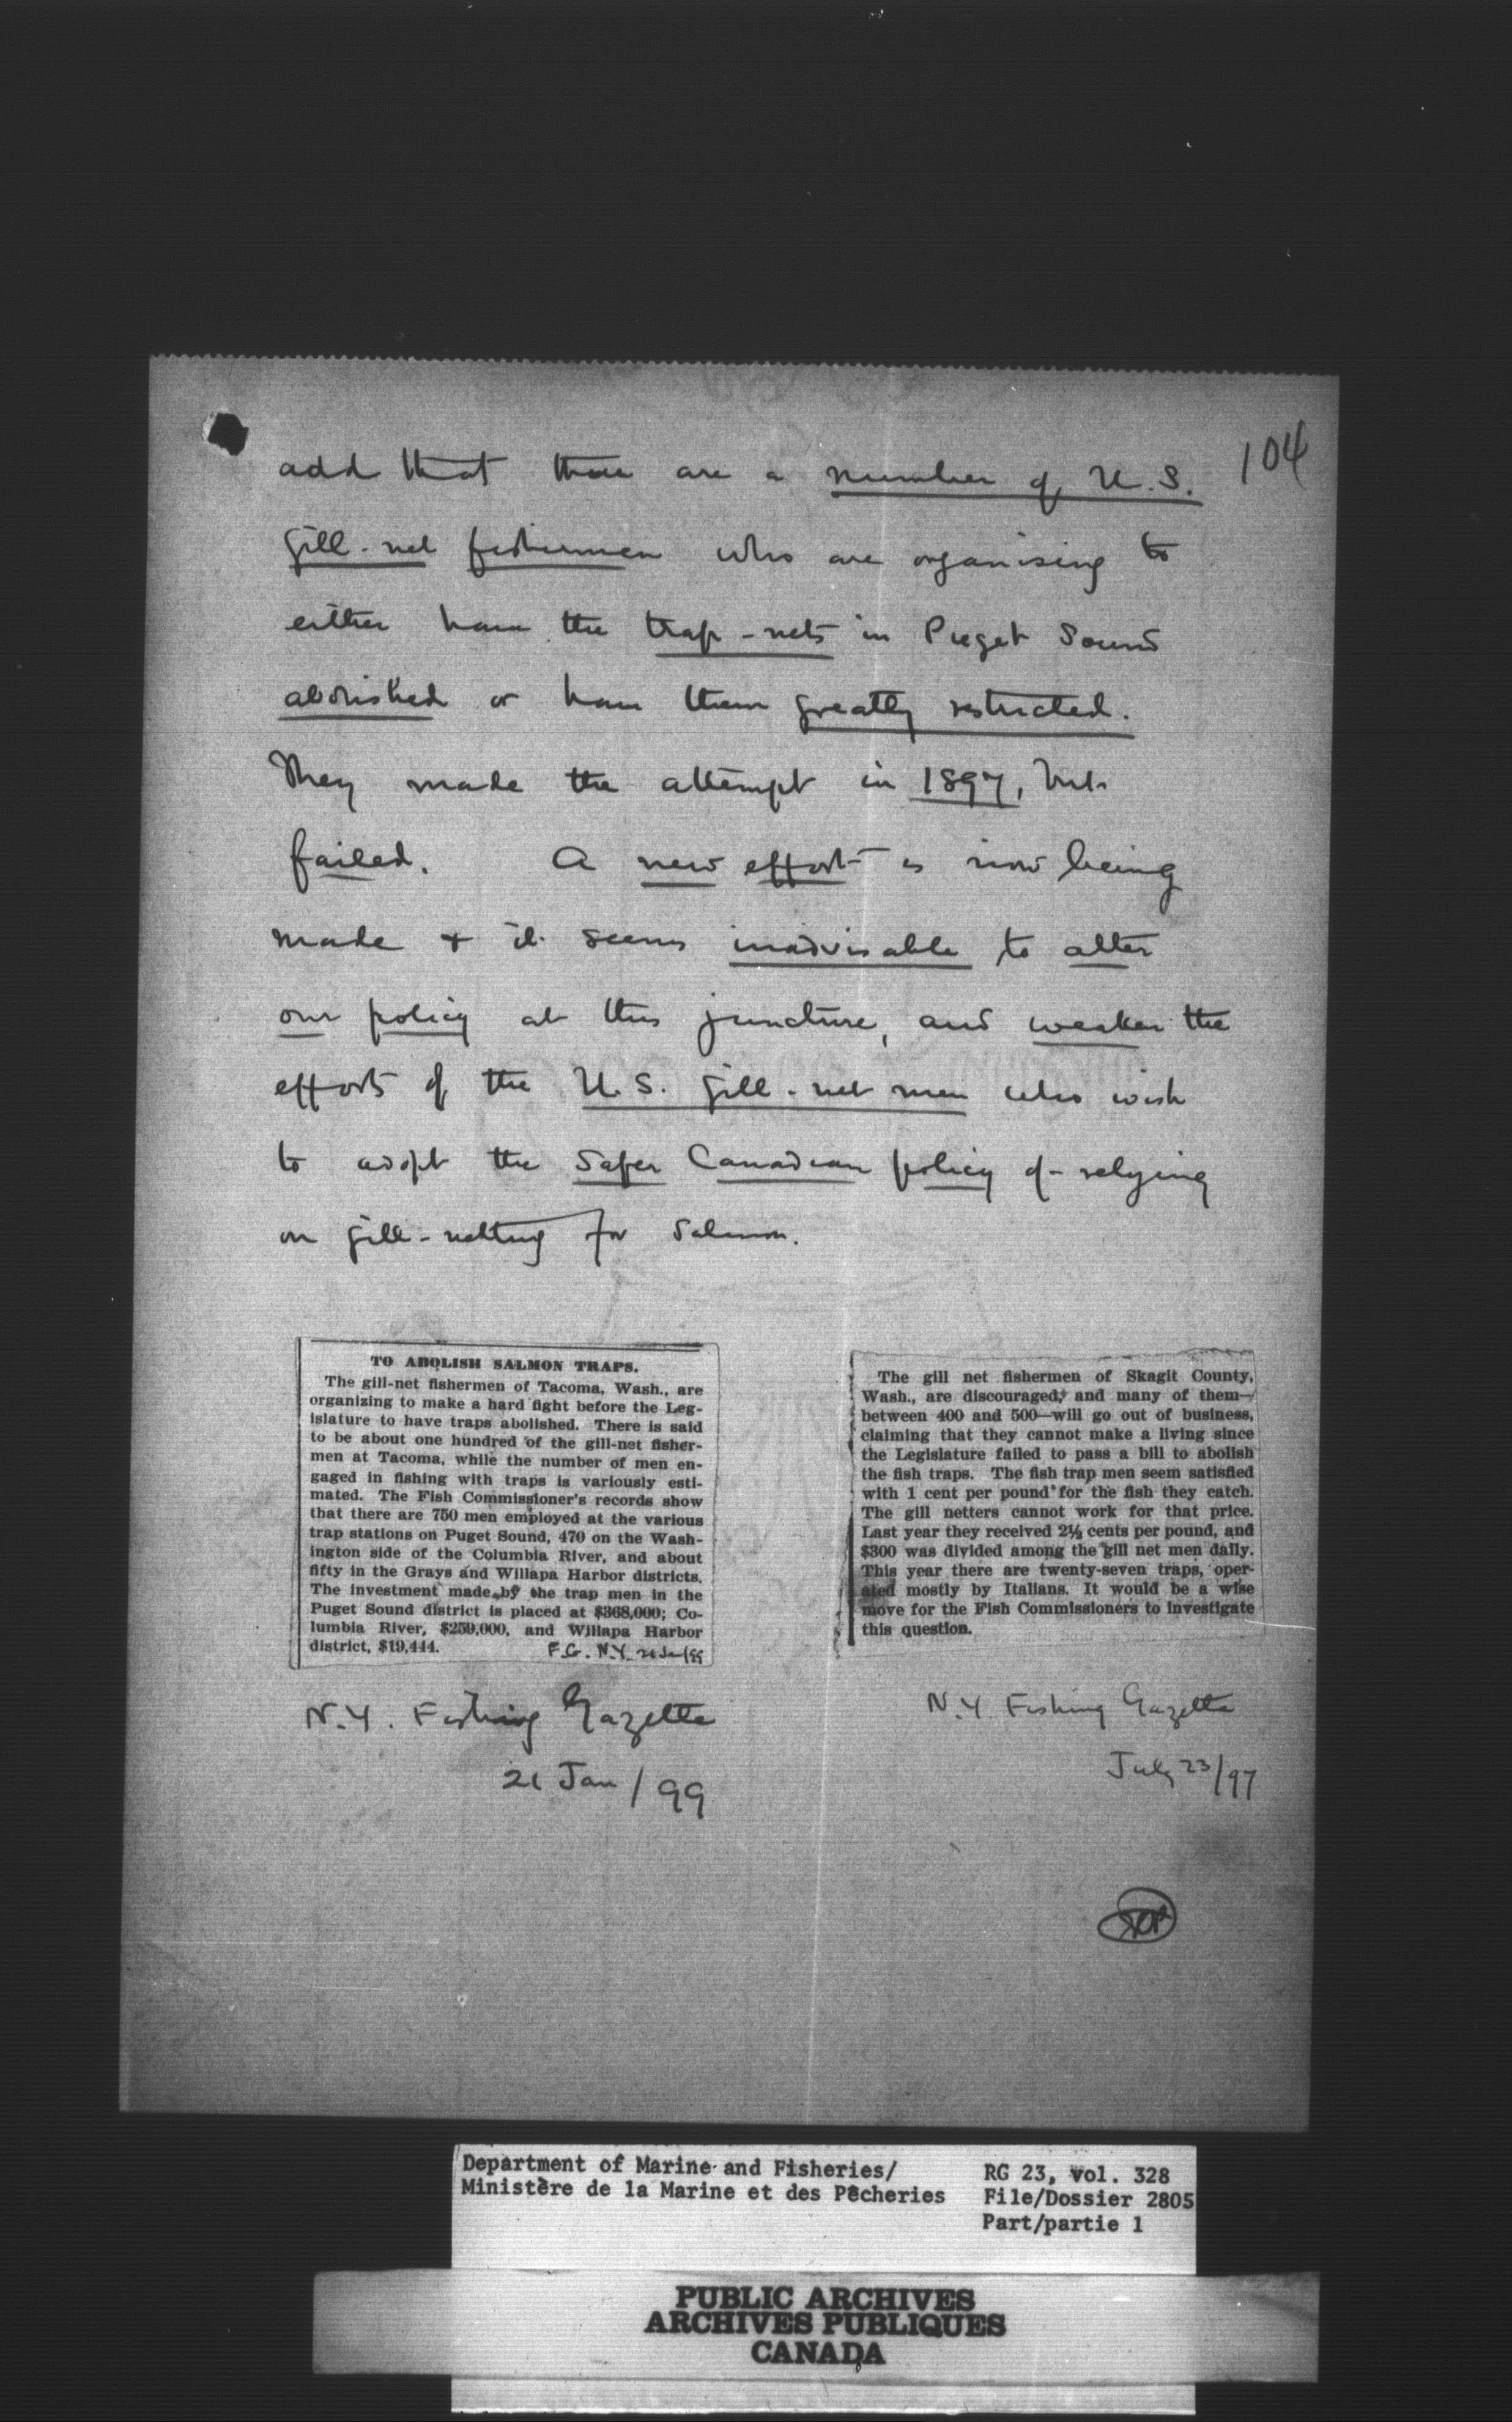 104
add that there are a number of U.S.
gill-net fishermen who are organising to
either have the trap-nets in Puget Sound
abolished or have them greatly restricted.
They made the attempt in 1897, but
failed. A new effort is now being
made & it seems inadvisable to alter
our policy at this juncture, and weaken the
efforts of the U.S. gill-net men who wish
to adopt the safer Canadian policy of relying
on gill-netting for salmon.
TO ABOLISH SALMON TRAPS.
The gill-net fishermen of Tacoma, Wash., are
organizing to make a hard fight before the Leg-
islature to have traps abolished. There is said
to be about one hundred of the gill-net fisher-
men at Tacoma, while the number of men en-
gaged in fishing with traps is variously esti-
mated. The Fish Commissioner's records show
that there are 750 men employed at the various
trap stations on Puget Sound, 470 on the Wash-
ington side of the Columbia River, and about
fifty in the Grays and Willapa Harbor districts.
The investment made by the trap men in the
Puget Sound district is placed at $368,000; Co-
lumbia River, $259,000, and Willapa Harbor
district, $19,444. F.G. N.Y. 21 Jan/99
N.Y. Fishing Gazette
21 Jan/99
The gill net fishermen of Skagit County,
Wash., are discouraged, and many of them—
between 400 and 500—will go out of business,
claiming that they cannot make a living since
the Legislature failed to pass a bill to abolish
the fish traps. The fish trap men seem satisfied
with 1 cent per pound for the fish they catch.
The gill netters cannot work for that price.
Last year they received 2½ cents per pound, and
$300 was divided among the gill net men daily.
This year there are twenty-seven traps, oper-
ated mostly by Italians. It would be a wise
move for the Fish Commissioners to investigate
this question.
N.Y. Fishing Gazette
July 23/97
Department of Marine and Fisheries/
Ministère de la Marine et des Pêcheries
RG 23, vol. 328
File/Dossier 2805
Part/partie 1
PUBLIC ARCHIVES
ARCHIVES PUBLIQUES
CANADA